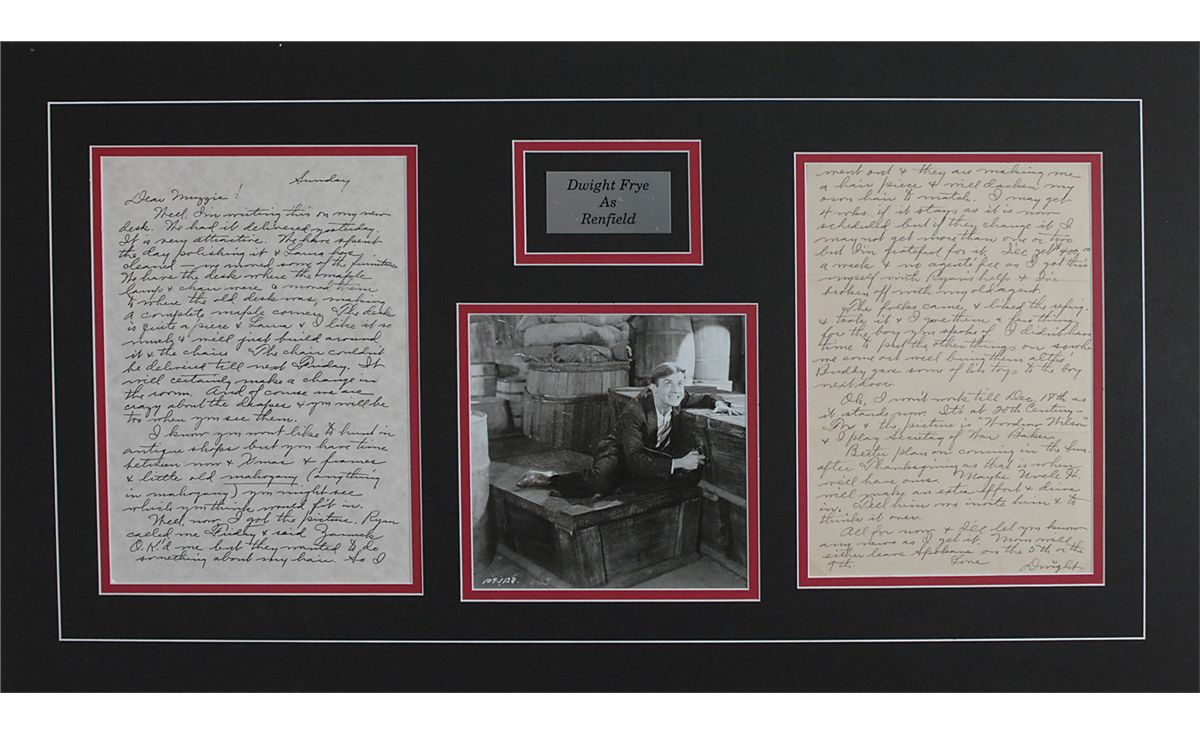 Sunday
Dear Muzzie!
Well, I'm writing this on my new
desk. We had it delivered yesterday.
It is very attractive. We have spent
the day polishing it & Laura has
cleaned & moved some of the furniture
We have the desk where the maple
lamp & chair were & moved them
to where the old desk was, making
a complete maple corner. The desk
is quite a piece & Laura & I like it so
much & will just build around
it & the chairs. The chair couldn't
be delivered till next Friday. It
will certainly make a change in
the room. And of course we are
crazy about the drapes & you will be
too when you see them.
I know you won't like to hunt in
antique shops but you have time
between now & Xmas & frames
& little old mahogany (anything
in mahogany) you might see
which you think would fit in.
Well, now, I got the picture. Ryan
called me Friday & said Zanuck
O.K.'d me but they wanted to do
something about my hair. So I
Dwight Frye
As
Renfield
109-1/28.
went out & they are making me
a hair piece & will darken my
own hair to match. I may get
4 wks. if it stays as it is now
scheduled but if they change it I
may not get more than one or two
but I'm grateful for it. I'll get $400
a week & no agent's fee as I got this
myself with Ryan's help & I'm
broken off with my old agent.
The folks came & liked the refrig.
& took it & I gave them a few things
for the boy you spoke of. I didn't have
time to put the other things on so when
we come out we'll bring them all to
Buddy gave some of his toys to the boy
next door.
Oh, I won't work till Dec. 18th as
it stands now. It's at 20th Century-
Fox & the picture is "Woodrow Wilson"
& I play Secretary of War Baker.
Better plan on coming in the Sun.
after Thanksgiving as that is when
we'll have ours. Maybe Uncle H.
will make an extra effort & drive
in. Tell him we invite him & to
think it over.
All for now & I'll let you know
any news as I get it. Mom will
either leave Spokane on the 5th or the
9th. Love
Dwight